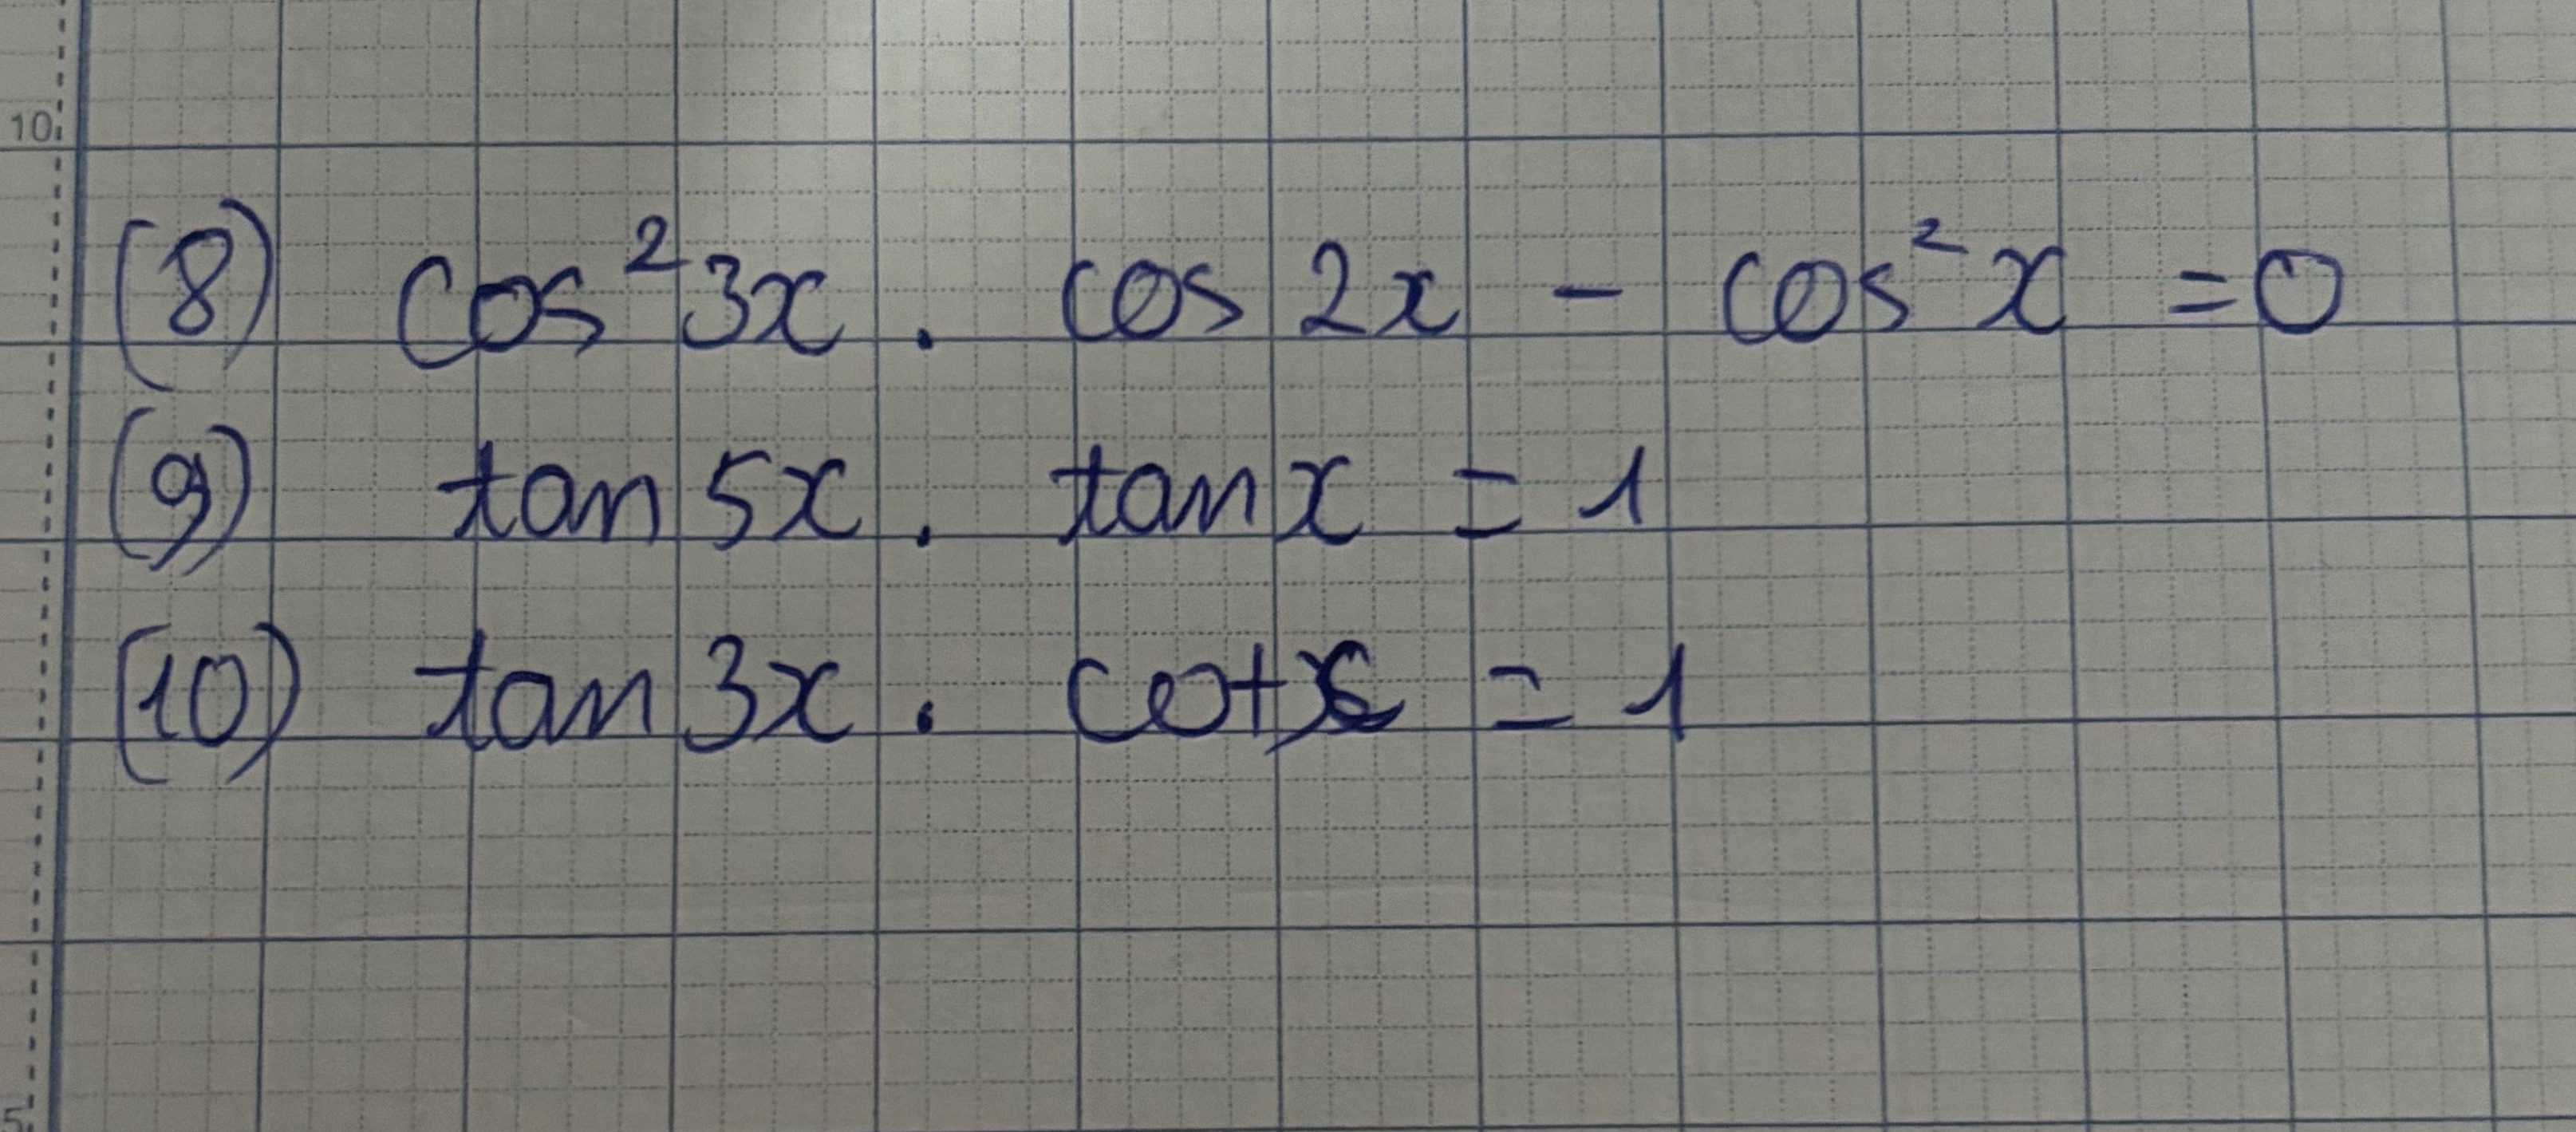 10
(8) cos²3x . cos 2x - cos²x = 0
(9) tan 5x . tan x = 1
(10) tan 3x . cot x = 1
5